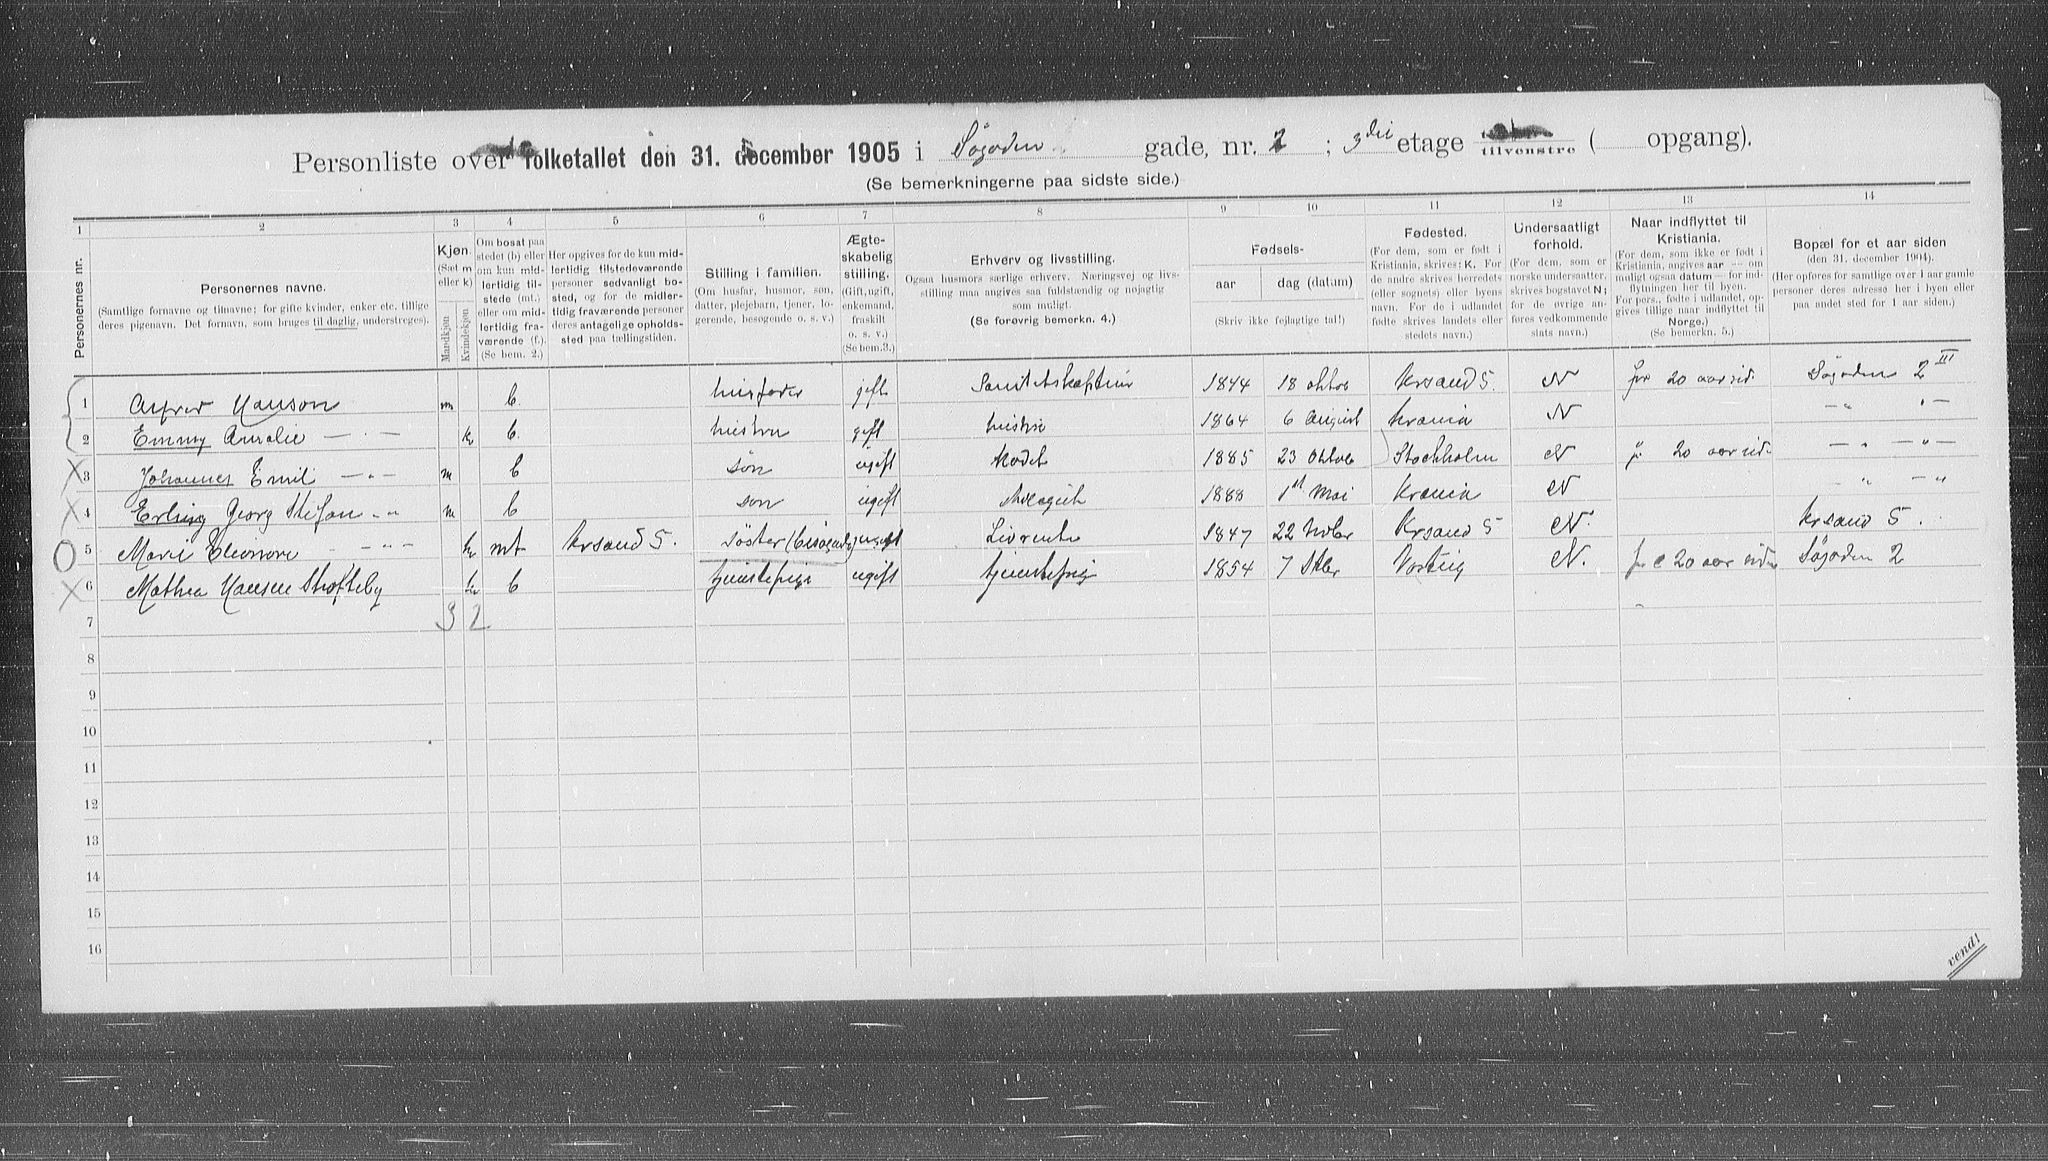 Personliste over folketallet den 31. december 1905 i Søgaden gade, nr. 2 ; 3die etage tilvenstre ( opgang).
(Se bemerkningerne paa sidste side.)
1 2 3 4 5 6 7 8 9 10 11 12 13 14
Personernes nr.
Personernes navne.
(Samtlige fornavne og tilnavne; for gifte kvinder, enker etc. tillige deres pigenavn. Det fornavn, som bruges til daglig, understreges).
Kjøn.
(Sæt m eller k)
Mandkjøn
Kvindekjøn
Om bosat paa stedet (b) eller om kun midlertidig tilstede (mt.) eller om midlertidig fraværende (f.). (Se bem. 2.)
Her opgives for de kun midlertidig tilstedeværende personer sedvanligt bosted, og for de midlertidig fraværende personer deres antagelige opholdssted paa tællingstiden.
Stilling i familien.
(Om husfar, husmor, søn, datter, plejebarn, tjener, logerende, besøgende o. s. v.)
Ægteskabelig stilling.
(Gift, ugift, enkemand, fraskilt o. s. v.)
(Se bem. 3.)
Erhverv og livsstilling.
Ogsaa husmors særlige erhverv. Næringsvej og livsstilling maa angives saa fuldstændig og nøjagtig som muligt.
(Se forøvrig bemerkn. 4.)
Fødsels-
aar
dag (datum)
(Skriv ikke fejlagtige tal!)
Fødested.
(For dem, som er født i Kristiania, skrives: K. For de andre skrives herredets (eller sognets) eller byens navn. For de i udlandet fødte skrives landets eller stedets navn.)
Undersaatligt forhold.
(For dem, som er norske undersaatter, skrives bogstavet N; for de øvrige anføres vedkommende stats navn.)
Naar indflyttet til Kristiania.
(For dem, som ikke er født i Kristiania, angives aar — om muligt ogsaa datum — for indflytningen her til byen. For pers., fødte i udlandet, opgives tillige naar indflyttet til Norge.)
(Se bemerkn. 5.)
Bopæl for et aar siden (den 31. december 1904).
(Her opføres for samtlige over 1 aar gamle personer deres adresse her i byen eller paa andet sted for 1 aar siden.)
1 Alfred Hanson m b. husfader gift Sanitetskaptein 1844 18 oktob Krsand S. N for 20 aar sid. Søgaden 2 III
2 Emmy Amalie — " — k b. hustru gift hustru 1864 6 august Krania N — " " —
3 Johannes Emil — " — m b søn ugift kadet 1885 23 oktob Stockholm N f. 20 aar sid. — " — " —
4 Erling Georg Stefan " " m b søn ugift 1888 1st Mai Krania N " — "
5 Marie Eleonore — " — " k mt Krsand S. søster (besøgende) ugift Livrente 1847 22 Novbr Krsand S N. Krsand S.
6 Mathea Hansen k b tjenestepige ugift tjenestepige 1854 7 N. 20 aar siden Søgaden 2
7 3 2
8
9
10
11
12
13
14
15
16
vend!